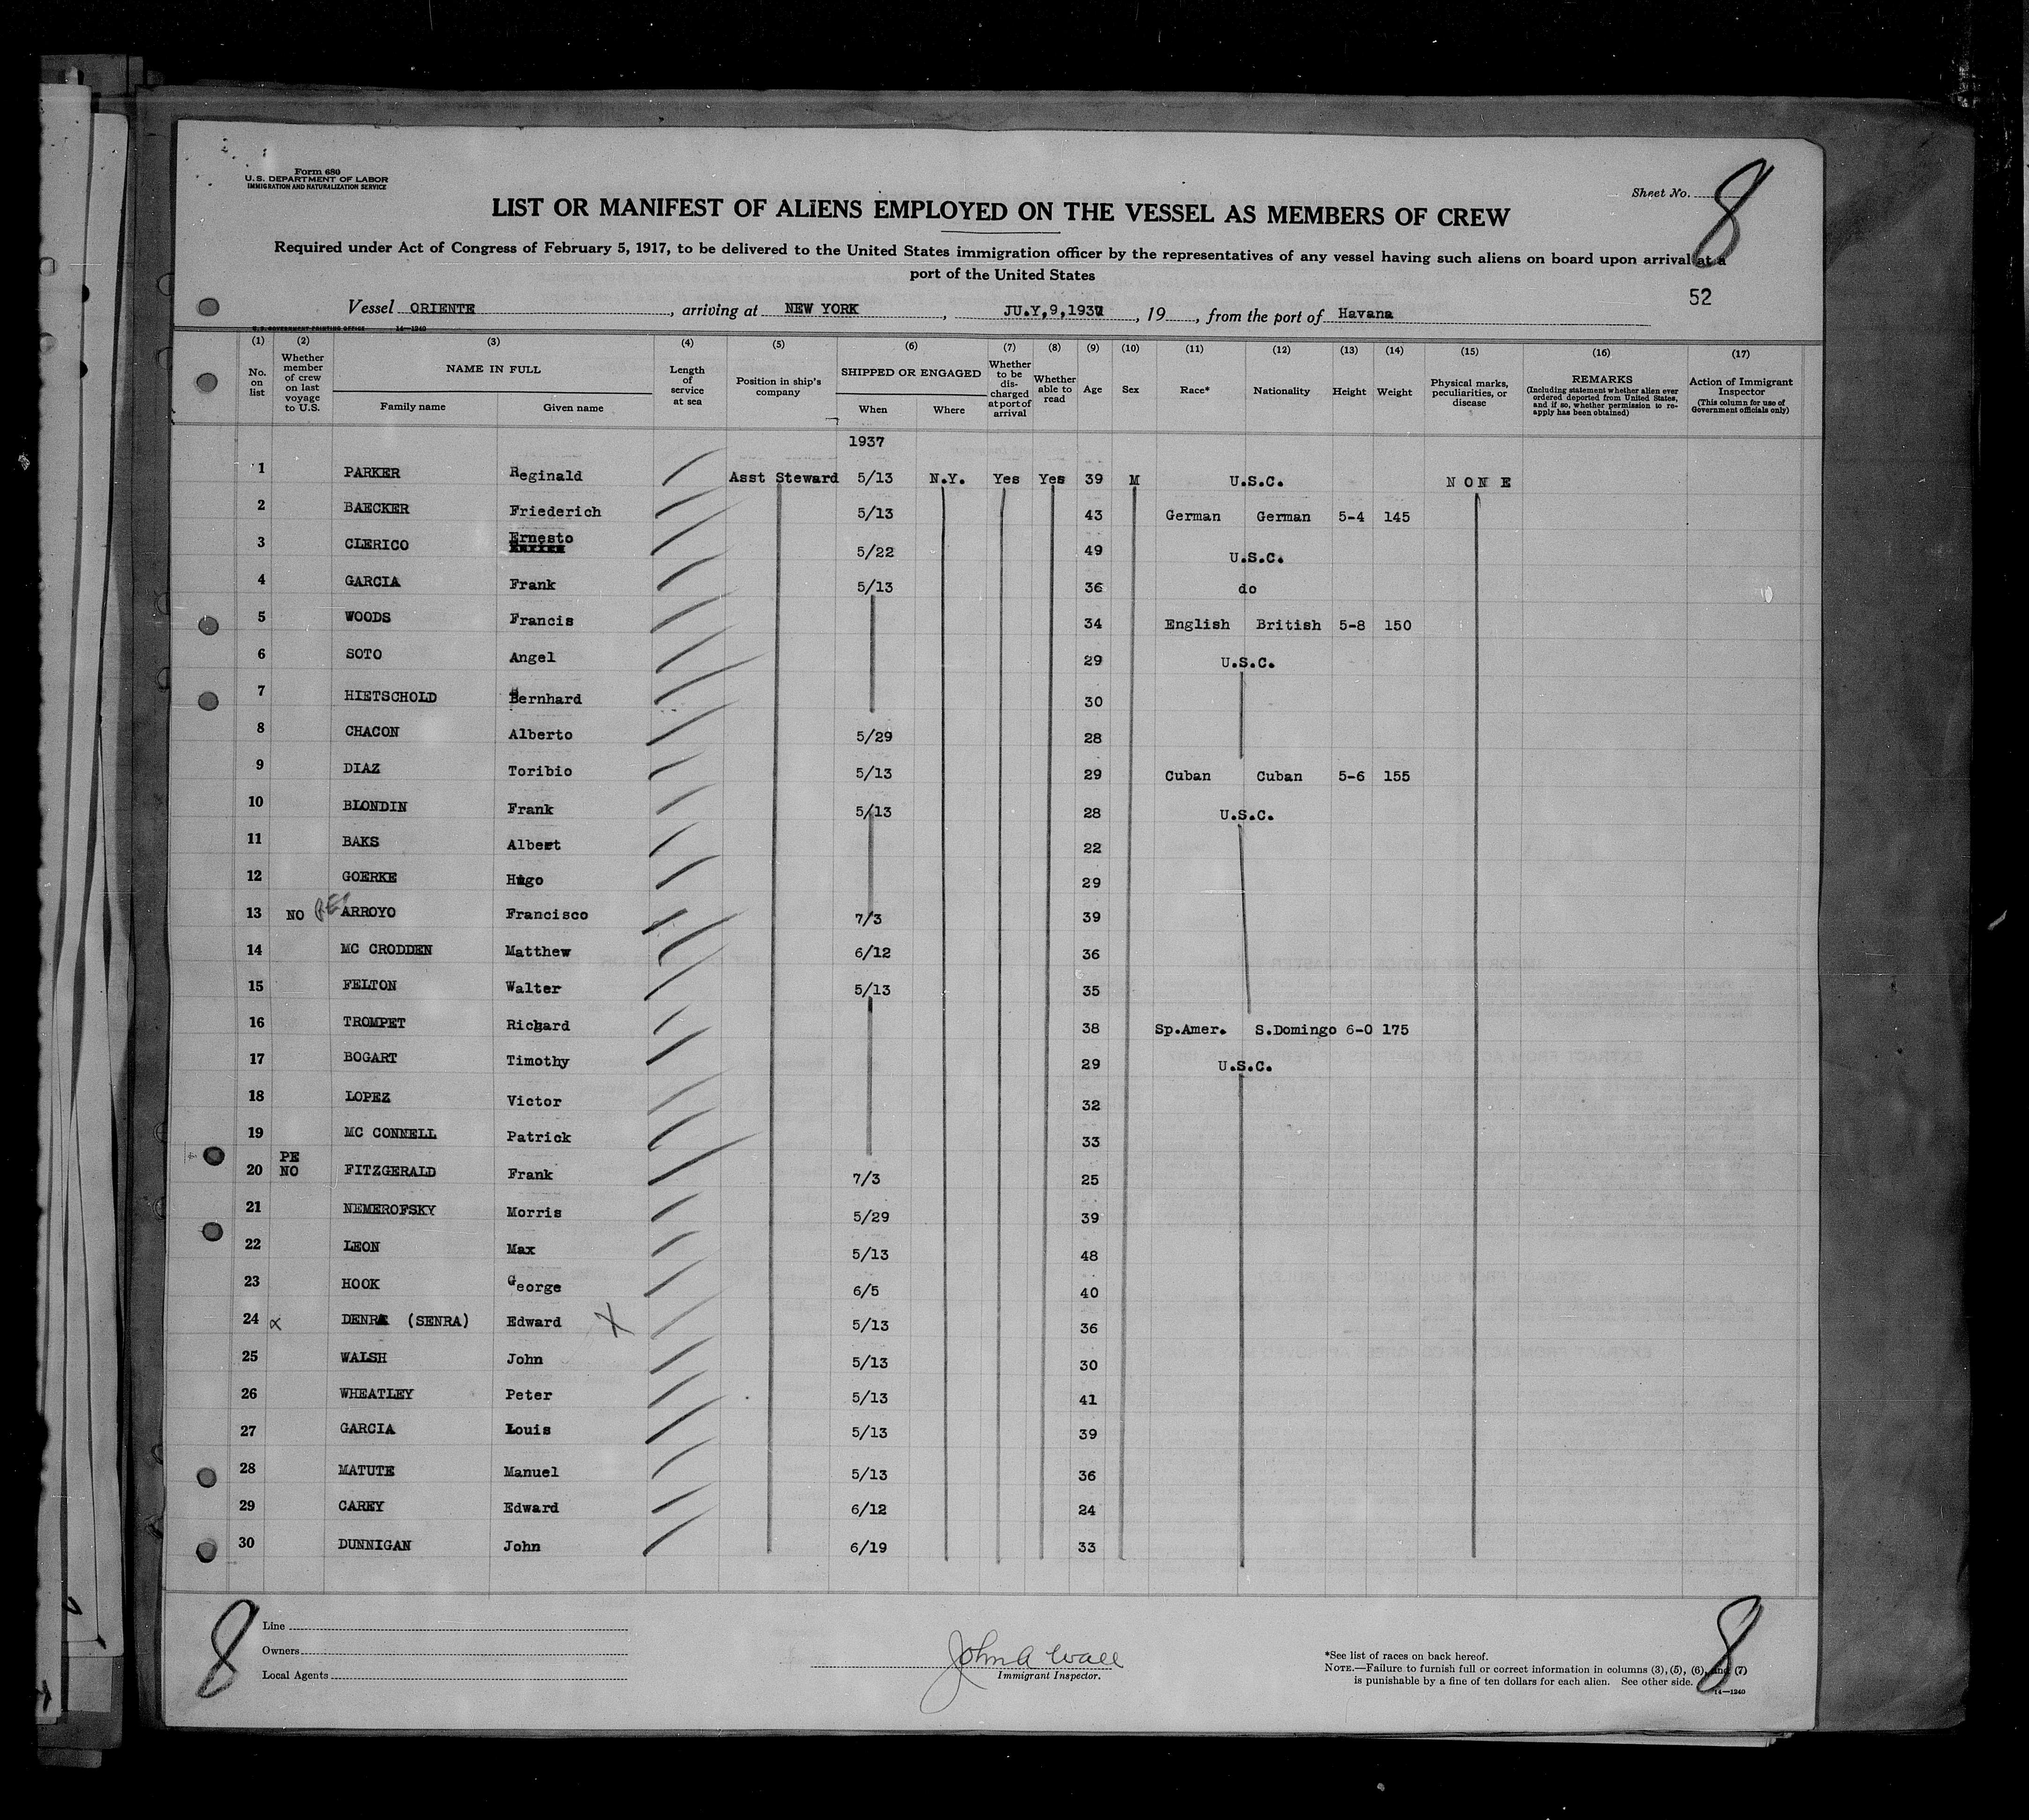 Form 680
U. S. DEPARTMENT OF LABOR
IMMIGRATION AND NATURALIZATION SERVICE
Sheet No. 8
LIST OR MANIFEST OF ALIENS EMPLOYED ON THE VESSEL AS MEMBERS OF CREW
Required under Act of Congress of February 5, 1917, to be delivered to the United States immigration officer by the representatives of any vessel having such aliens on board upon arrival at a
port of the United States
52
Vessel ORIENTE, arriving at NEW YORK, JU.Y,9,1937, 19, from the port of Havana
U. S. GOVERNMENT PRINTING OFFICE 14—1240
(1) (2) (3) (4) (5) (6) (7) (8) (9) (10) (11) (12) (13) (14) (15) (16) (17)
No. on list
Whether member of crew on last voyage to U.S.
NAME IN FULL
Family name Given name
Length of service at sea
Position in ship's company
SHIPPED OR ENGAGED
When Where
Whether to be discharged at port of arrival
Whether able to read
Age
Sex
Race*
Nationality
Height
Weight
Physical marks, peculiarities, or disease
REMARKS
(Including statement whether alien ever ordered deported from United States, and if so, whether permission to re-apply has been obtained)
Action of Immigrant Inspector
(This column for use of Government officials only)
1937
1 PARKER Reginald Asst Steward 5/13 N.Y. Yes Yes 39 M U.S.C. NONE
2 BAECKER Friederich 5/13 43 German German 5-4 145
3 CLERICO Ernesto 5/22 49 U.S.C.
4 GARCIA Frank 5/13 36 do
5 WOODS Francis 34 English British 5-8 150
6 SOTO Angel 29 U.S.C.
7 HIETSCHOLD Bernhard 30
8 CHACON Alberto 5/29 28
9 DIAZ Toribio 5/13 29 Cuban Cuban 5-6 155
10 BLONDIN Frank 5/13 28 U.S.C.
11 BAKS Albert 22
12 GOERKE Hugo 29
13 NO ARROYO Francisco 7/3 39
14 MC CRODDEN Matthew 6/12 36
15 FELTON Walter 5/13 35
16 TROMPET Richard 38 Sp.Amer. S.Domingo 6-0 175
17 BOGART Timothy 29 U.S.C.
18 LOPEZ Victor 32
19 MC CONNELL Patrick 33
PE
20 NO FITZGERALD Frank 7/3 25
21 NEMEROFSKY Morris 5/29 39
22 LEON Max 5/13 48
23 HOOK George 6/5 40
24 DENRA (SENRA) Edward X 5/13 36
25 WALSH John 5/13 30
26 WHEATLEY Peter 5/13 41
27 GARCIA Louis 5/13 39
28 MATUTE Manuel 5/13 36
29 CAREY Edward 6/12 24
30 DUNNIGAN John 6/19 33
8
Line
Owners
Local Agents
John A Wall
Immigrant Inspector.
*See list of races on back hereof.
NOTE.—Failure to furnish full or correct information in columns (3), (5), (6), and (7)
is punishable by a fine of ten dollars for each alien. See other side.
14—1240
8